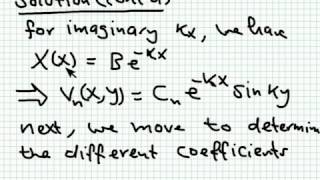 for imaginary Kx, we have
X(x) = B e^-Kx
⇒ Vn(x,y) = Cn e^-Kx sin Ky
next, we move to determin
the different coefficients